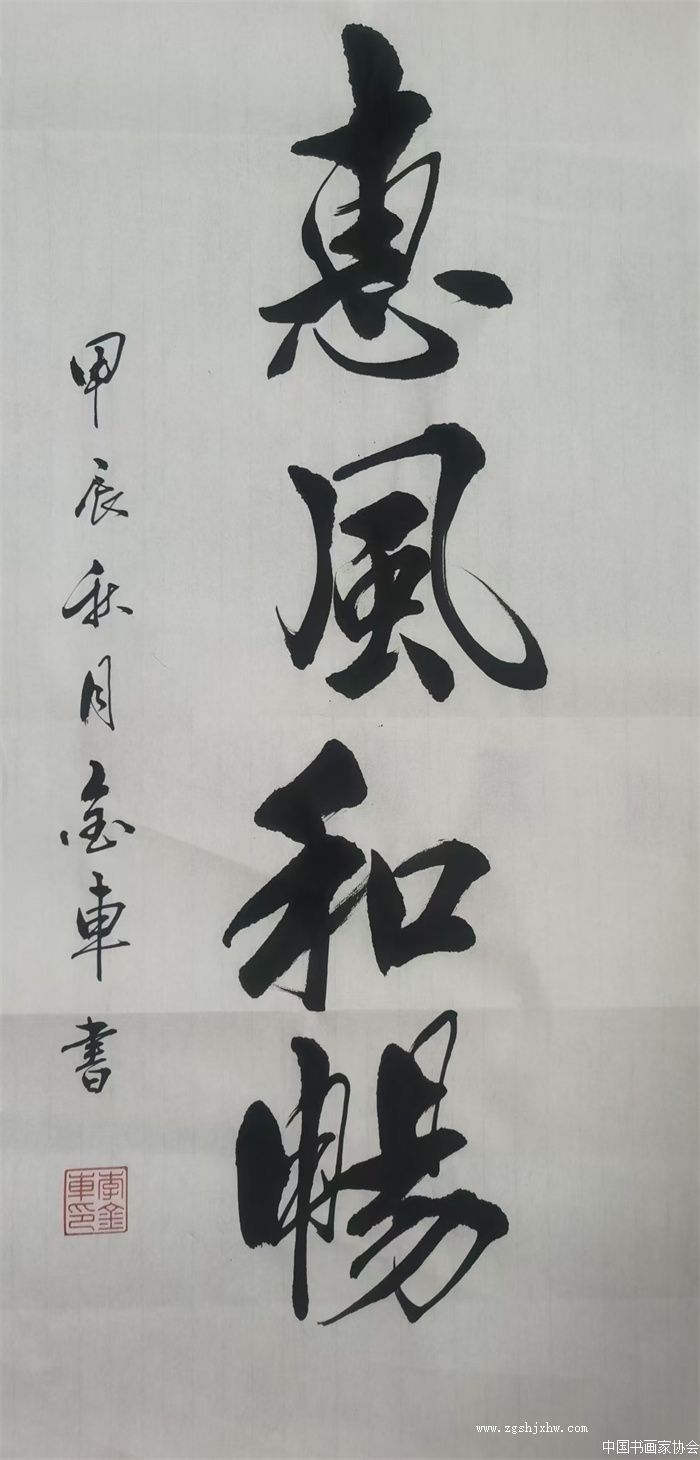 惠風和暢
甲辰秋月金車書
李金車印
www.zgshjxhw.com
中国书画家协会